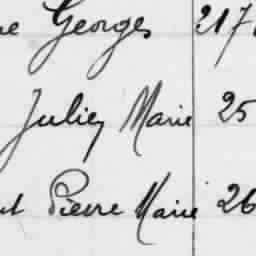 Georges 217
Julien Marie 25
Pierre Marie 26